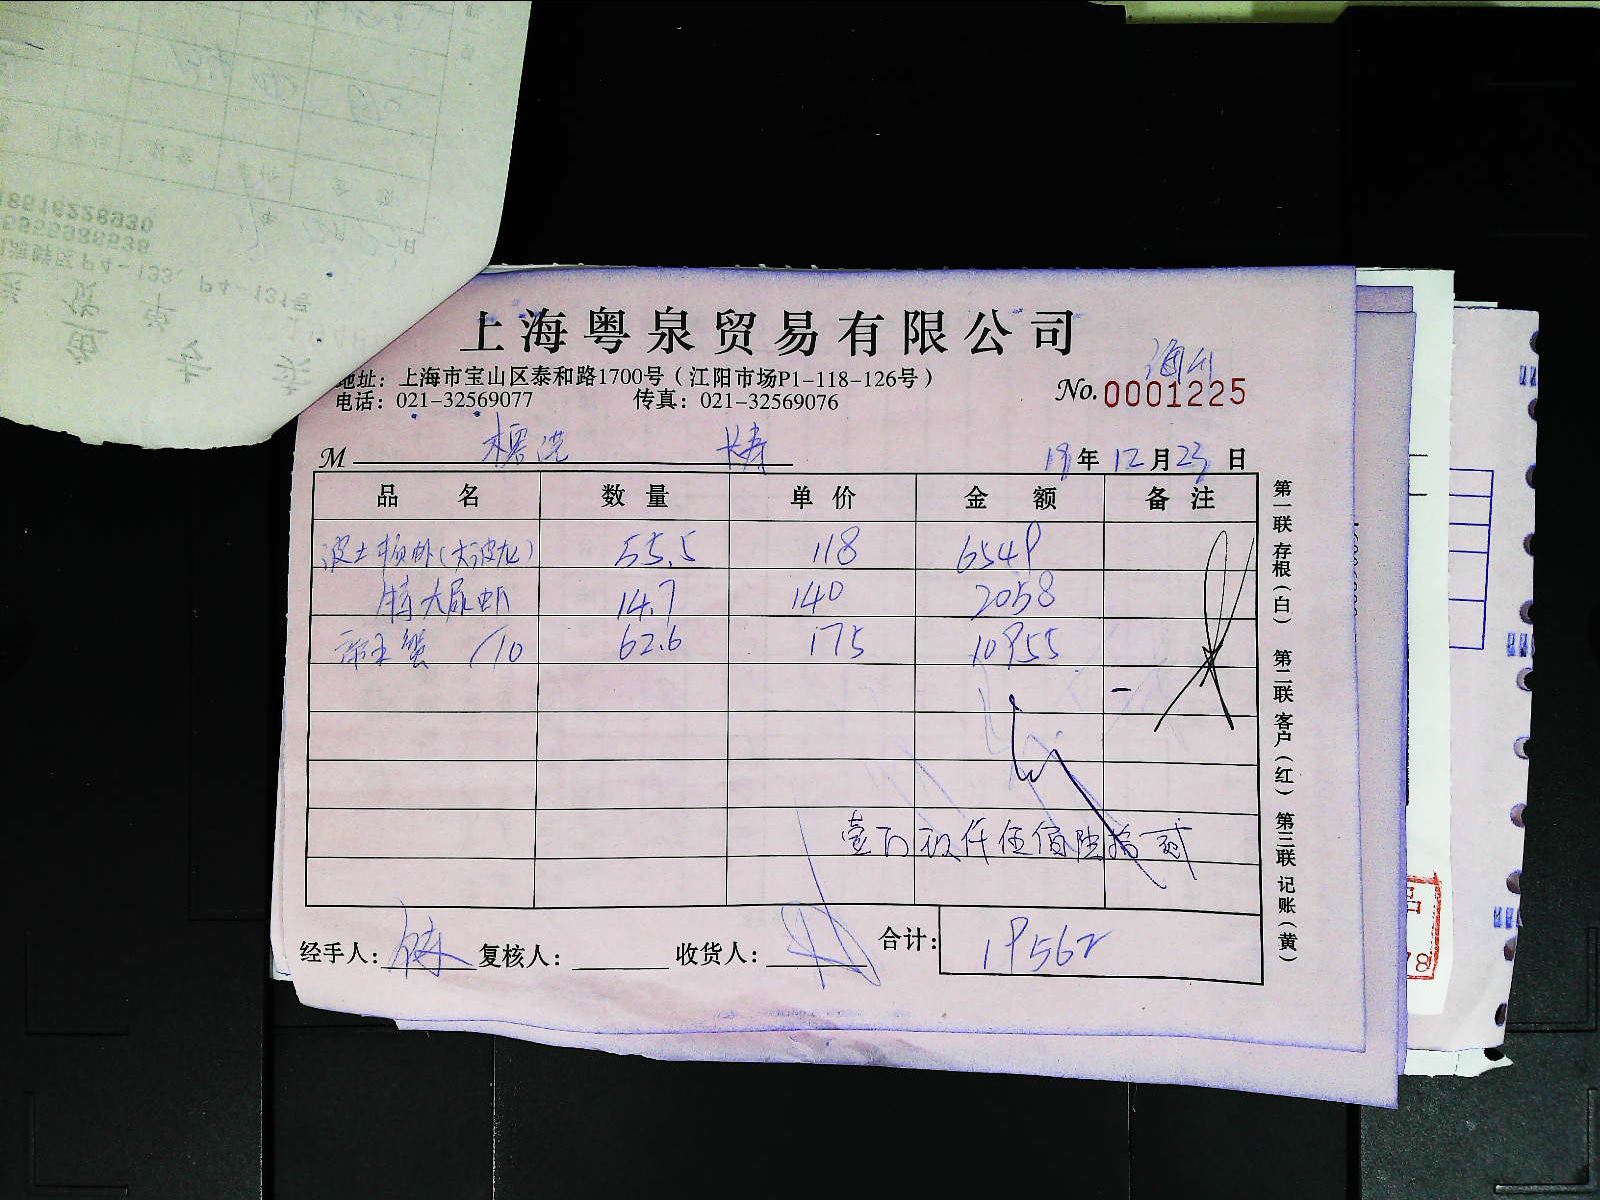 上海粤泉贸易有限公司
地址：上海市宝山区泰和路1700号（江阳市场P1-118-126号）
电话：021-32569077 传真：021-32569076
No. 0001225
M 长寿 19年12月23日
品名 数量 单价 金额 备注
波士顿虾（大波龙） 55.5 118 6549
特大尿虾 14.7 140 2058
帝王蟹 /10 62.6 175 10955
壹万玖仟伍佰陆拾贰
经手人： 复核人： 收货人： 合计： 19562
第一联 存根（白） 第二联 客户（红） 第三联 记账（黄）
18516228930
P4-133、P4-131号